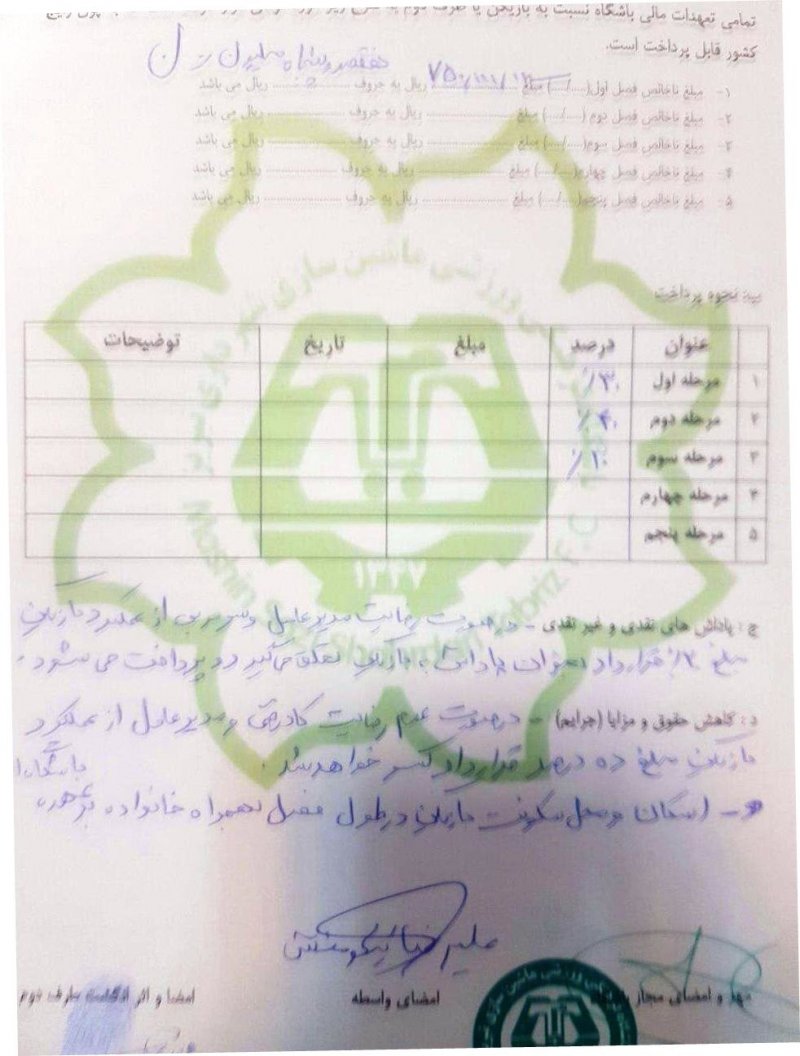 تمامی تعهدات مالی باشگاه نسبت به بازیکن یا طرف دوم به شرح زیر
کشور قابل پرداخت است.
هفتصد و پنجاه میلیون
۱- مبلغ ناخالص فصل اول(..../....) مبلغ ۷۵۰/۰۰۰/۰۰۰ ریال به حروف ........ ریال می باشد
۲- مبلغ ناخالص فصل دوم (..../....) مبلغ ........ ریال به حروف ........ ریال می باشد
۳- مبلغ ناخالص فصل سوم(..../....) مبلغ ........ ریال به حروف ........ ریال می باشد
۴- مبلغ ناخالص فصل چهارم(..../....) مبلغ ........ ریال به حروف ........ ریال می باشد
۵- مبلغ ناخالص فصل پنجم(..../....) مبلغ ........ ریال به حروف ........ ریال می باشد
ب: نحوه پرداخت
عنوان درصد مبلغ تاریخ توضیحات
۱ مرحله اول ۳۰٪
۲ مرحله دوم ۴۰٪
۳ مرحله سوم ۱۰٪
۴ مرحله چهارم
۵ مرحله پنجم
ورزشی ماشین سازی شهرداری تبریز
Mashin Sazi Shahrdari Tabriz F.C
ج: پاداش های نقدی و غیر نقدی - درصورت رضایت مدیرعامل و سرمربی از عملکرد بازیکن
مبلغ قرارداد بعنوان پاداش به بازیکن تعلق می‌گیرد و پرداخت می شود.
د: کاهش حقوق و مزایا (جرایم) - درصورت عدم رضایت کادرفنی و مدیرعامل از عملکرد
بازیکن مبلغ ده درصد قرارداد کسر خواهد شد.
و- اسکان و محل سکونت بازیکن در طول فصل بهمراه خانواده بر عهده باشگاه
علیرضا نیکومنش
مهر و امضای مجاز باشگاه امضای واسطه امضا و اثر انگشت طرف دوم